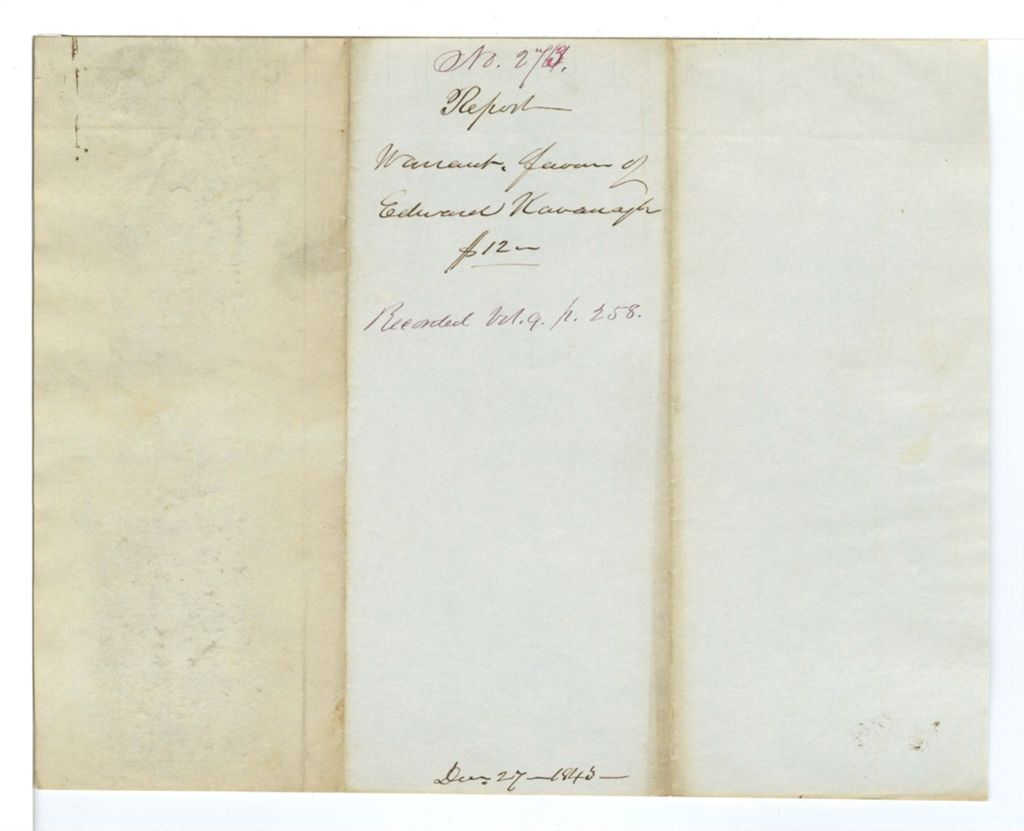 No. 273.
Report
Warrant, favour of
Edward Kavanagh
$12—
Recorded Vol. 9. p. 258.
Dec. 27—1843—